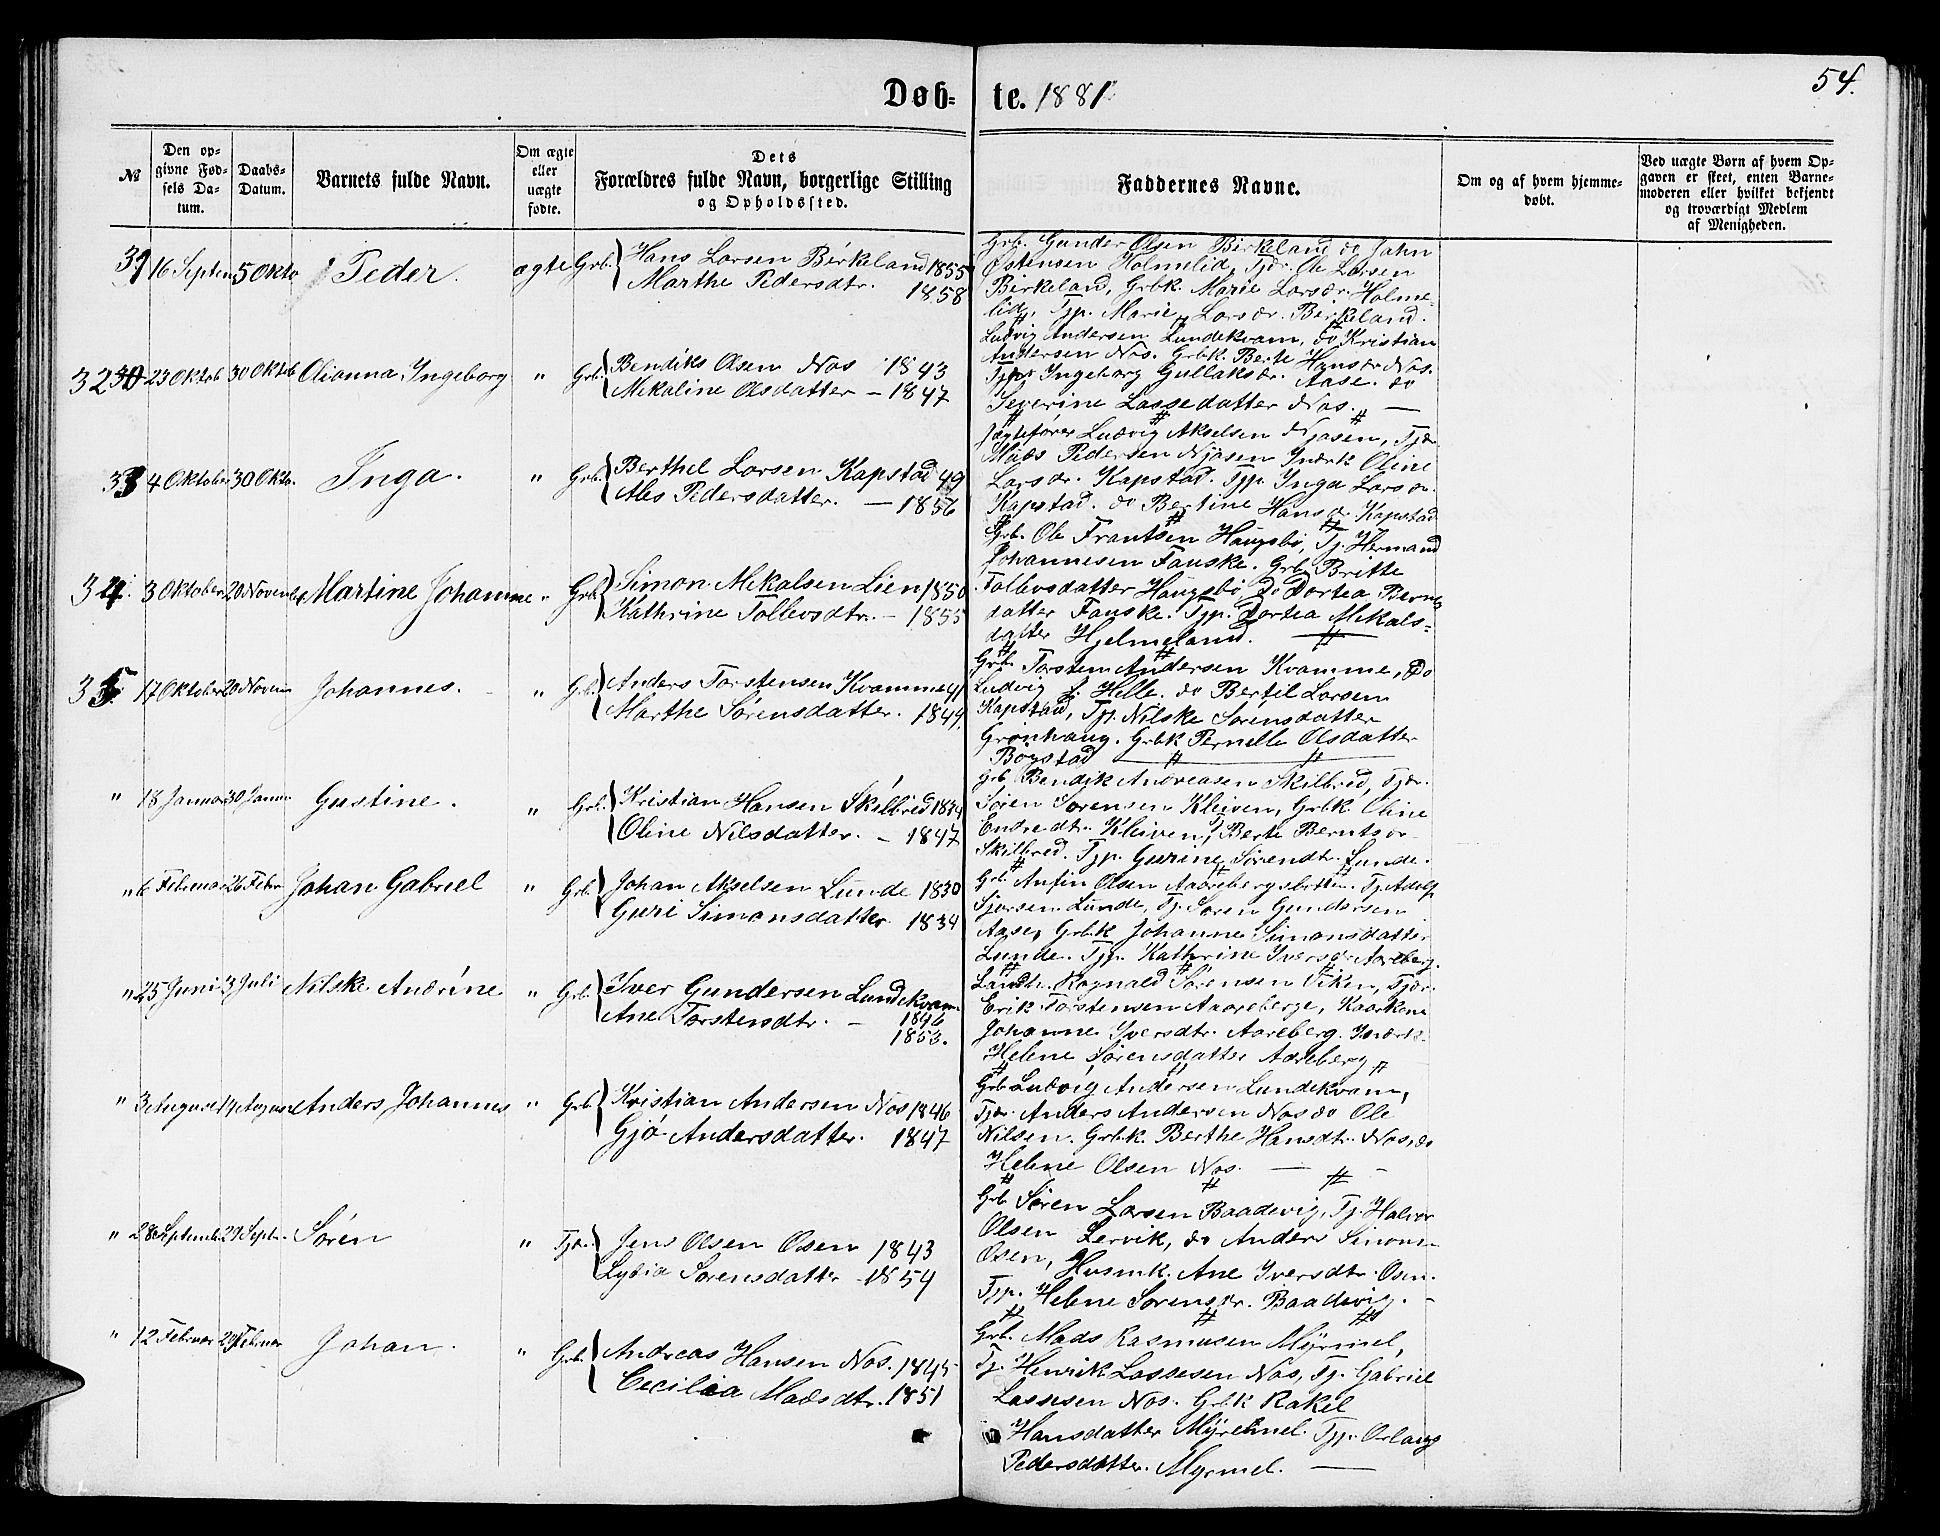 54.
Døb- te. 1881
№
Den op-
givne Fød-
sels Da-
tum.
Daabs-
Datum.
Barnets fulde Navn.
Om ægte
eller
uægte
fødte.
Dets
Forældres fulde Navn, borgerlige Stilling
og Opholdssted.
Faddernes Navne.
Om og af hvem hjemme-
døbt.
Ved uægte Børn af hvem Op-
gaven er skeet, enten Barne-
moderen eller hvilket bekjendt
og troværdigt Medlem
af Menigheden.
16 Septem 5 Okto Peder. ægte Grb. Hans Larsen Birkeland 1855
Marthe Pedersdtr. 1858
Grb. Gunder Olsen Birkeland do John
Østensen Holmelid, Tjdr. Ole Larsen
Birkeland, Grbk. Marie Larsdr. Holme-
lid, Tjp. Marie Larsdr. Birkeland.
32 23 Oktob 30 Oktb Olianna Ingeborg " Grb. Bendiks Olsen Nos 1843
Mekaline Olsdatter - 1847
Ludvig Andersen Lundekvam, do Kristian
Andersen Nos. Grbk. Berte Hansdr Nos.
Tjp. Ingeborg Gullaksdr. Aase. do
Severine Lassedatter Nos. —
33 4 Oktober 30 Okto. Inga. " Grb. Berthel Larsen Kapstad 49
Ales Pedersdatter. — 1856
Jægtefører Ludvig Akselsen Njøsen, Tjdr.
Mads Pedersen Njøsen Inderk Oline
Larsdr. Kapstad. Tjp. Inga Larsdr.
Kapstad. do Bertine Hansdr. Kapstad
34. 3 Oktober 20 November Martine Johanne " Grb. Simon Mekalsen Lien 1850
Kathrine Tollevsdtr. - 1855
Grb. Ole Frantsen Haugsbø, Tj. Hermand
Johannesen Fauske. Grb. Britte
Tollevsdatter Haugsbø, Do Dortea Bernts
datter Fauske. Tjp. Dortea Mekals-
datter Hjelmeland.
35. 17 Oktober 20 Novem Johannes. " Grb. Anders Torstensen Kvamme 41
Marthe Sørensdatter. 1849.
Grb. Torsten Andersen Kvamme, Do
Ludvig J. Helle. do Bertil Larsen
Kapstad, Tjp. Nilske Sørensdatter
Grønhaug. Grbk Pernelle Olsdatter
Bogstad
" 18 Januar 30 Janu Gustine. " Grb. Kristian Hansen Skilbred 1834
Oline Nilsdatter. - 1847
Grb Bendik Andreasen Skilbred, Tjdr.
Søren Sørensen Kleiven, Grbk. Oline
Endredtr. Kleiven, Berte Berntsdr
Skilbred. Tjp. Gurine Sørendtr. Lunde.
" 6 Februar 26 Febr Johan Gabriel " Grb. Johan Akselsen Lunde 1830
Guri Simonsdatter 1834
Grb. Anfin Olsen Aarebergsbotten. Tj. Adolf
Sjursen Lunde, Tj. Søren Gundersen
Aase, Grbk Johanne Simonsdatter
Lunde. Tjp. Kathrine Iversdr Aareberg.
" 25 Juni 3 Juli Nilske Andrine " Grb. Iver Gundersen Lundekvam.
Ane Torstendtr. — 1846
1853.
Landh. Rognald Sørensen Viken, Tjdr.
Erik Torstensen Aareberge, Kaarkone
Johanne Iversdtr. Aareberg. Inderk.
Helene Sørensdatter Aareberg
" 3 August 14 August Anders Johannes " Grb. Kristian Andersen Nos 1846
Gjø Andersdatter. 1847
Grb. Ludvig Andersen Lundekvam,
Tjdr. Anders Andersen Nos do Ole
Nilsen. Grbk. Berthe Hansdtr. Nos, do
Helene Olsen Nos. —
" 28 Septemb 29 Septr. Søren " Tjdr. Jens Olsen Osen 1843
Lydia Sørensdatter - 1854
Grb. Søren Larsen Baadevig, Tj. Halvor
Olsen Lervik, do Anders Simons-
Osen, Husmk. Ane Iversdtr. Osen.
Tjp. Helene Sørensdr. Baadevig. -
" 12 Februar 29 Februar Johan. " Grb. Andreas Hansen Nos. 1845
Cecilia Madsdtr. 1851
Grb. Mads Rasmusen Myrmel,
Tj. Henrik Lassesen Nos, Tj. Gabriel
Lassesen Nos. Grbk Rakel
Hansdatter Myrmel. Tjp.
Pedersdatter. Myrmel. —